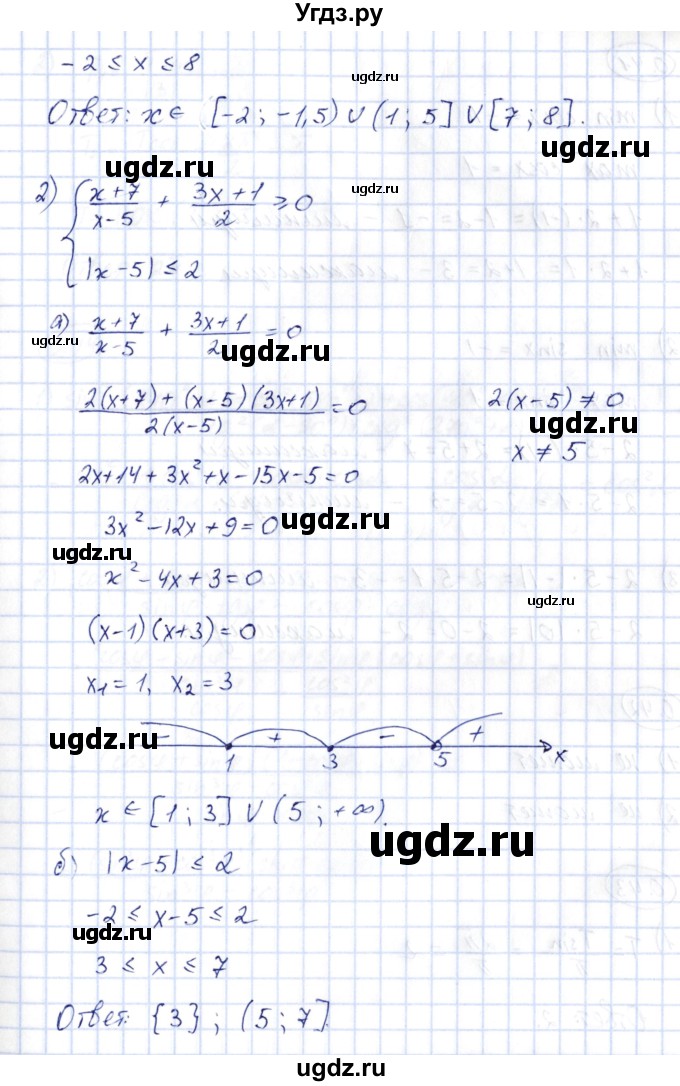 Угдз.ру
-2 ≤ x ≤ 8
ugdz.ru
Ответ: x ∈ [-2; -1,5) ∪ (1; 5] ∪ [7; 8].
ugdz.ru
ugdz.ru
2) { (x+7)/(x-5) + (3x+1)/2 ≥ 0
ugdz.ru
|x-5| ≤ 2
а) (x+7)/(x-5) + (3x+1)/2 = 0
ugdz.ru
ugdz.ru
(2(x+7) + (x-5)(3x+1))/(2(x-5)) = 0 2(x-5) ≠ 0
ugdz.ru
ugdz.ru
x ≠ 5
2x+14+3x²+x-15x-5=0
3x²-12x+9=0
ugdz.ru
ugdz.ru
x²-4x+3=0
ugdz.ru
(x-1)(x+3)=0
x₁=1, x₂=3
ugdz.ru
- + - +
1 3 5 x
x ∈ [1; 3] ∪ (5; +∞).
ugdz.ru
б) |x-5| ≤ 2
-2 ≤ x-5 ≤ 2
ugdz.ru
3 ≤ x ≤ 7
Ответ: {3}; (5; 7]
ugdz.ru
ugdz.ru